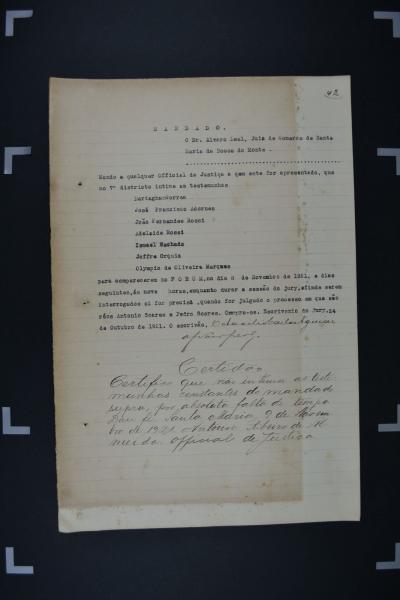 42
M A N D A D O .
O Dr. Alvaro Leal, Juiz de Comarca de Santa
Maria da Bocca do Monte .
Mando a qualquer Official de Justiça a quem este for apresentado, que
no 7º districto intime as testemunhas
José Francisco
João Fernandes Rossi
Adelaide Rossi
Ismael Machado
Joffre Orquis
Olympio de Oliveira Marques
para comparecerem no F O R U M, no dia 8 de Novembro de 1921, e dias
seguintes, ás nove horas, enquanto durar a sessão do jury, afim de serem
interrogados si for preciso, quando for julgado o processo em que são
réos Antonio Soares e Pedro Soares. Cumpra-se. Escrivania do Jury, 24
de Outubro de 1921. O escrivão,
Certidão
Certifico que não intimei as teste
munhas constantes do mandado
supra, por absoluta falta de tempo
Dou fé. Santa Maria, 9 de Novem
bro de 1921. Antonio Ribeiro de Al
meida Official de Justiça